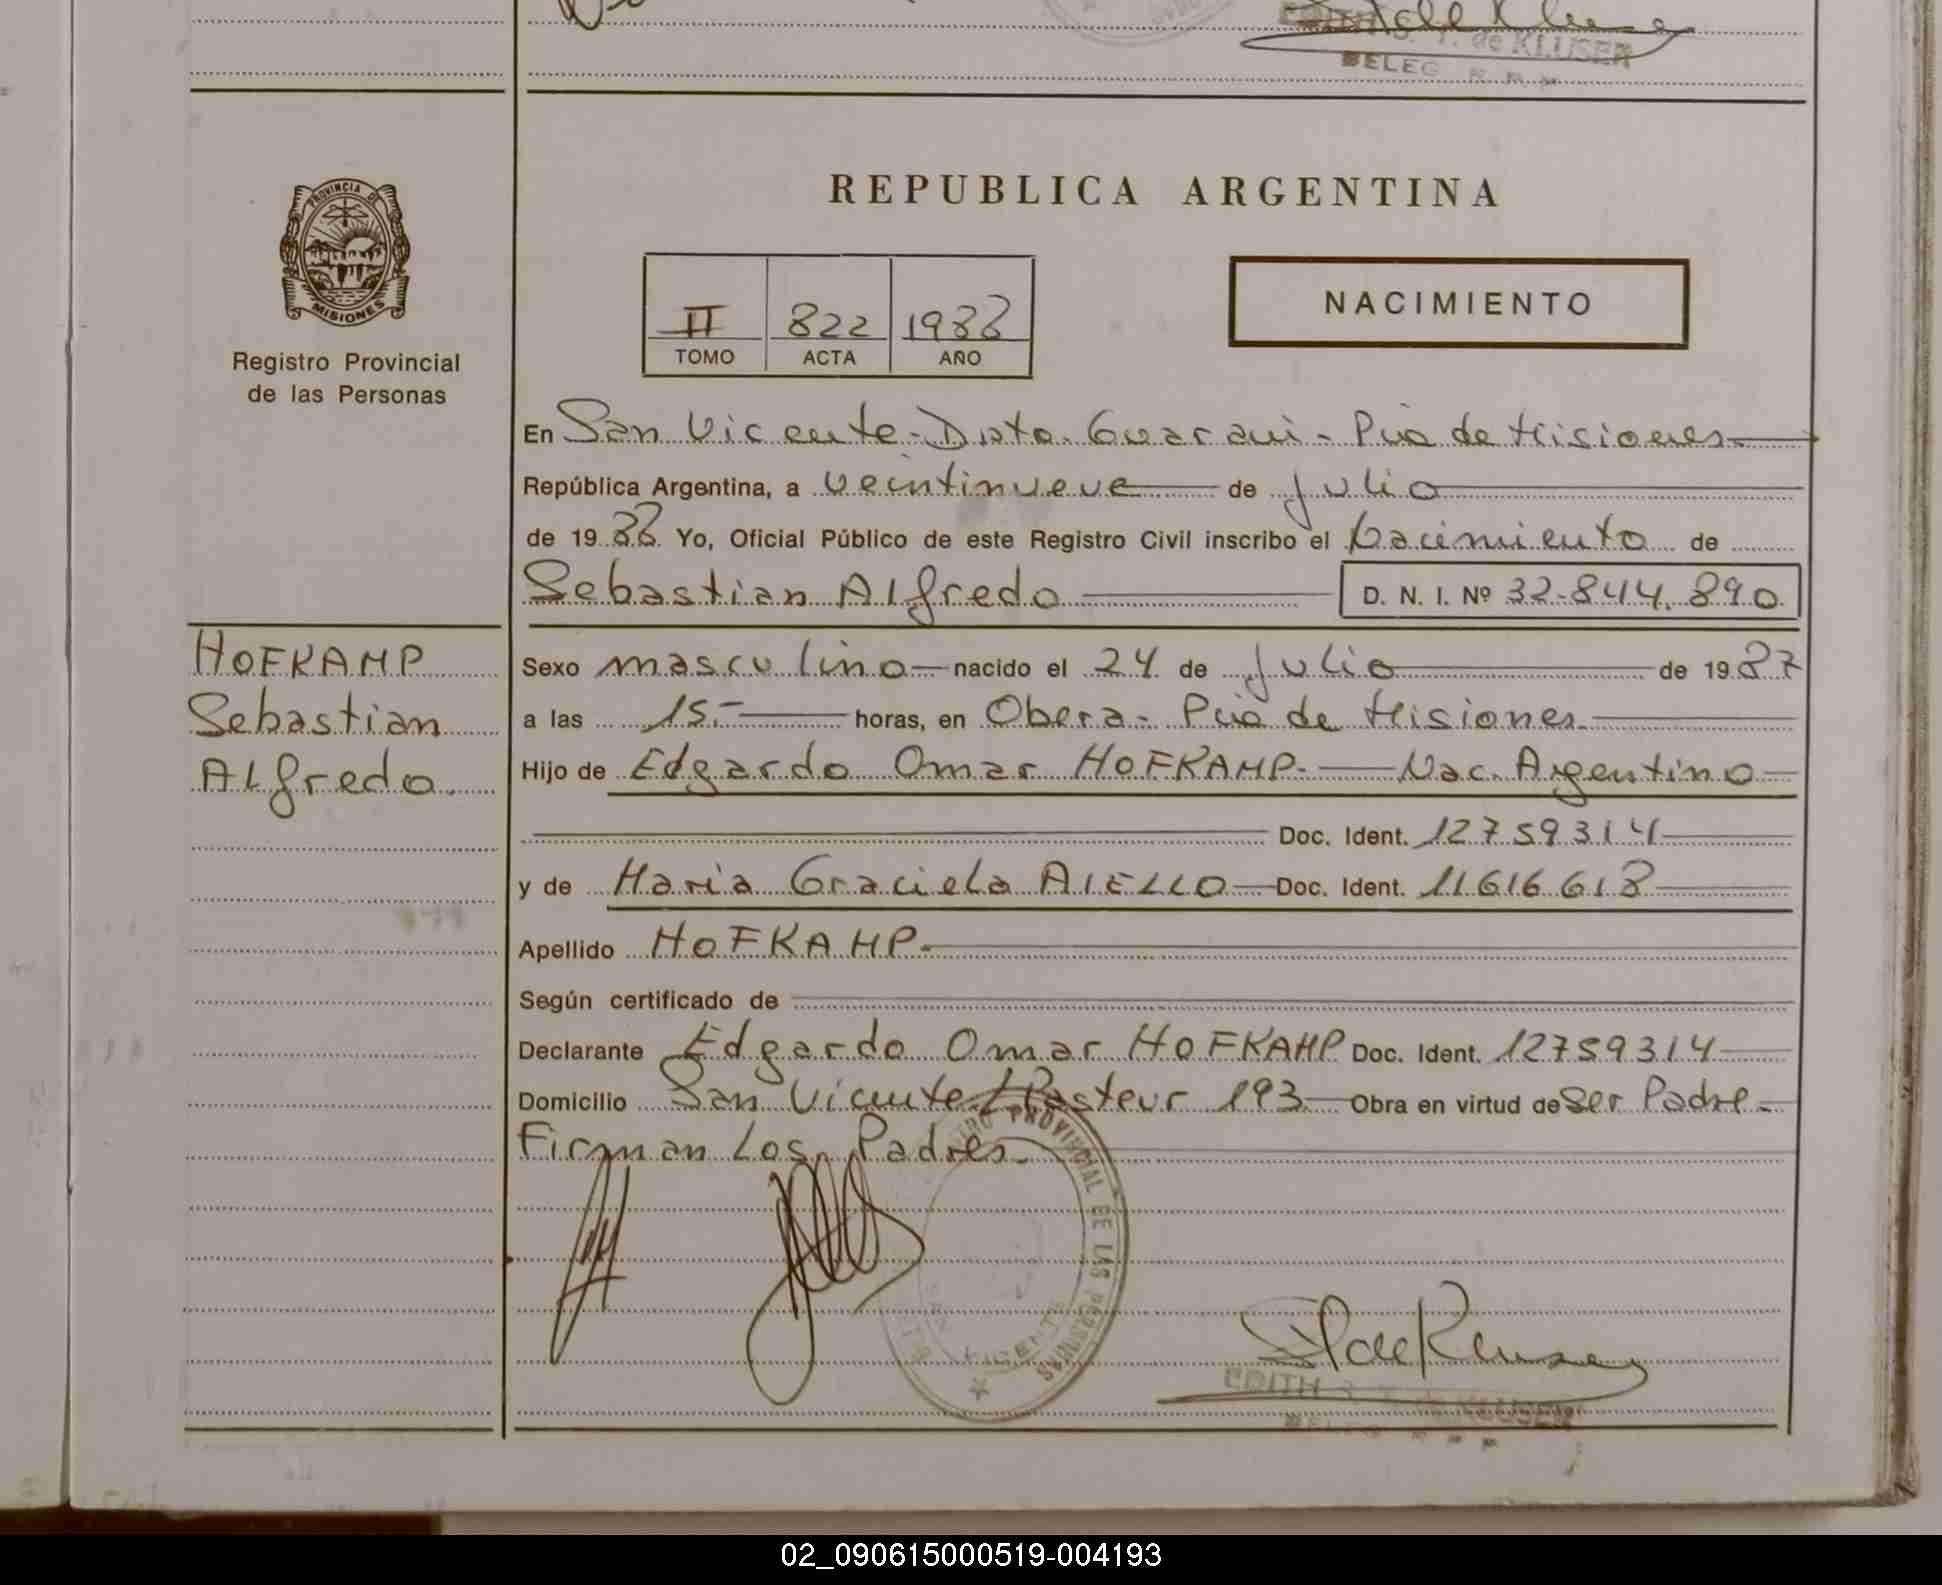 de KLUSER
BELEG R. P. P.
REPUBLICA ARGENTINA
PROVINCIA DE
MISIONES
Registro Provincial
de las Personas
NACIMIENTO
II 822 1988
TOMO ACTA AÑO
En San Vicente - Dpto. Guarani - Pcia de Misiones
República Argentina, a veintinueve de julio
de 1988 Yo, Oficial Público de este Registro Civil inscribo el Nacimiento de
Sebastian Alfredo D. N. I. Nº 32.844.890
HOFKAMP
Sebastian
Alfredo.
Sexo masculino nacido el 24 de Julio de 1987
a las 15.- horas, en Obera - Pcia de Misiones
Hijo de Edgardo Omar HOFKAMP. Nac. Argentino
Doc. Ident. 12759314
y de Maria Graciela AIELLO Doc. Ident. 11616618
Apellido HOFKAMP.
Según certificado de
Declarante Edgardo Omar HOFKAMP Doc. Ident. 12759314
Domicilio San Vicente Pasteur 193 Obra en virtud de Ser Padre.
Firman Los Padres.
REGISTRO PROVINCIAL DE LAS PERSONAS
SAN VICENTE
de Kluser
EDITH KLUSER
BELEG R P P
02_090615000519-004193